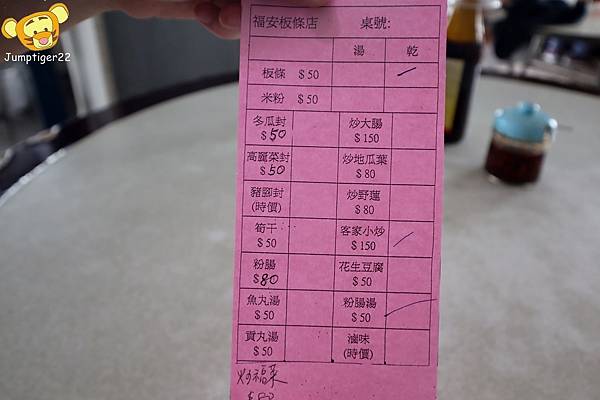 Jumptiger22
福安板條店 桌號:
湯 乾
板條 $50
米粉 $50
冬瓜封 炒大腸
$50 $150
高麗菜封 炒地瓜葉
$50 $80
豬腳封 炒野蓮
(時價) $80
筍干 客家小炒
$50 $150
粉腸 花生豆腐
$80 $50
魚丸湯 粉腸湯
$50 $50
貢丸湯 滷味
$50 (時價)
炒福菜